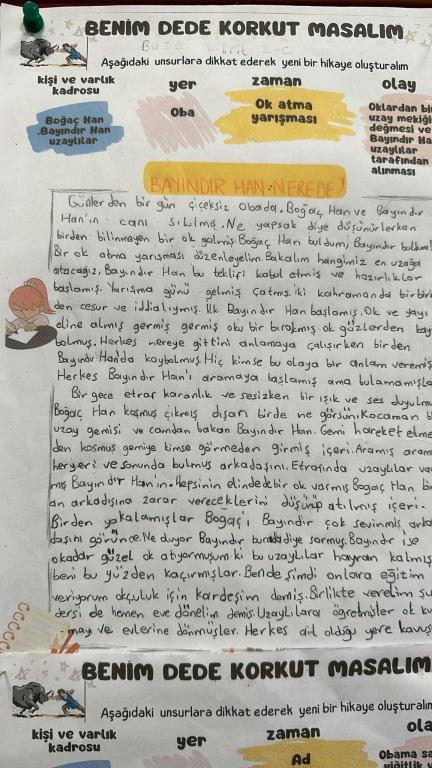 BENİM DEDE KORKUT MASALIM
Aşağıdaki unsurlara dikkat ederek yeni bir hikaye oluşturalım
kişi ve varlık kadrosu
yer
zaman
olay
Boğaç Han
Bayındır Han
uzaylılar
Oba
Ok atma
yarışması
Oklardan bir
uzay mekiği
değmesi ve
Bayındır Ha
uzaylılar
tarafından
alınması
BAYINDIR HAN NEREDE?
Günlerden bir gün çiçeksiz obada. Boğaç Han ve Bayındır
Han'ın canı sıkılmış. Ne yapsak diye düşünürlerken
birden bilinmeyen bir ok gelmiş. Boğaç Han buldum, Bayındır buldum!
Bir ok atma yarışması düzenleyelim. Bakalım hangimiz en uzağa
atacağız. Bayındır Han bu teklifi kabul etmiş ve hazırlıklar
başlamış. Yarışma günü gelmiş çatmış. iki kahramanda birbirin
den cesur ve iddialıymış. İlk Bayındır Han başlamış. Ok ve yayı
eline almış germiş germiş oku bir bırakmış ok gözlerden kay
bolmuş. Herkes nereye gittini anlamaya çalışırken birden
Bayındır Han'da kaybolmuş. Hiç kimse bu olaya bir anlam veremiş
Herkes Bayındır Han'ı aramaya başlamış ama bulamamışla
Bir gece etraf karanlık ve sesizken bir ışık ve ses duyulmu
Boğaç Han koşmuş çıkmış dışarı birde ne görsün. Kocaman b
uzay gemisi ve camdan bakan Bayındır Han. Gemi hareket etme
den koşmuş gemiye kimse görmeden girmiş içeri. Aramış aram
heryeri ve sonunda bulmuş arkadaşını. Etrafında uzaylılar var
mış Bayındır Han'ın. Hepsinin elinde bir ok varmış Boğaç Han bi
an arkadaşına zarar vereceklerini düşünüp atılmış içeri.
Birden yakalamışlar Boğaç'ı Bayındır çok sevinmiş arka
daşını görünce. Ne duyor Bayındır burada diye sormuş. Bayındır ise
okadar güzel ok atıyormuşum ki bu uzaylılar hayran kalmış
beni bu yüzden kaçırmışlar. Bende şimdi onlara eğitim
veriyorum okçuluk için kardeşim demiş. Birlikte verelim şu
dersi de hemen eve dönelim demiş. Uzaylılara öğretmişler ok ku
may ve evlerine dönmüşler. Herkes ait olduğu yere kavuş
BENİM DEDE KORKUT MASALIM
Aşağıdaki unsurlara dikkat ederek yeni bir hikaye oluşturalım
kişi ve varlık kadrosu
yer
zaman
ola
Ad
Obama sa
yiğitlik v